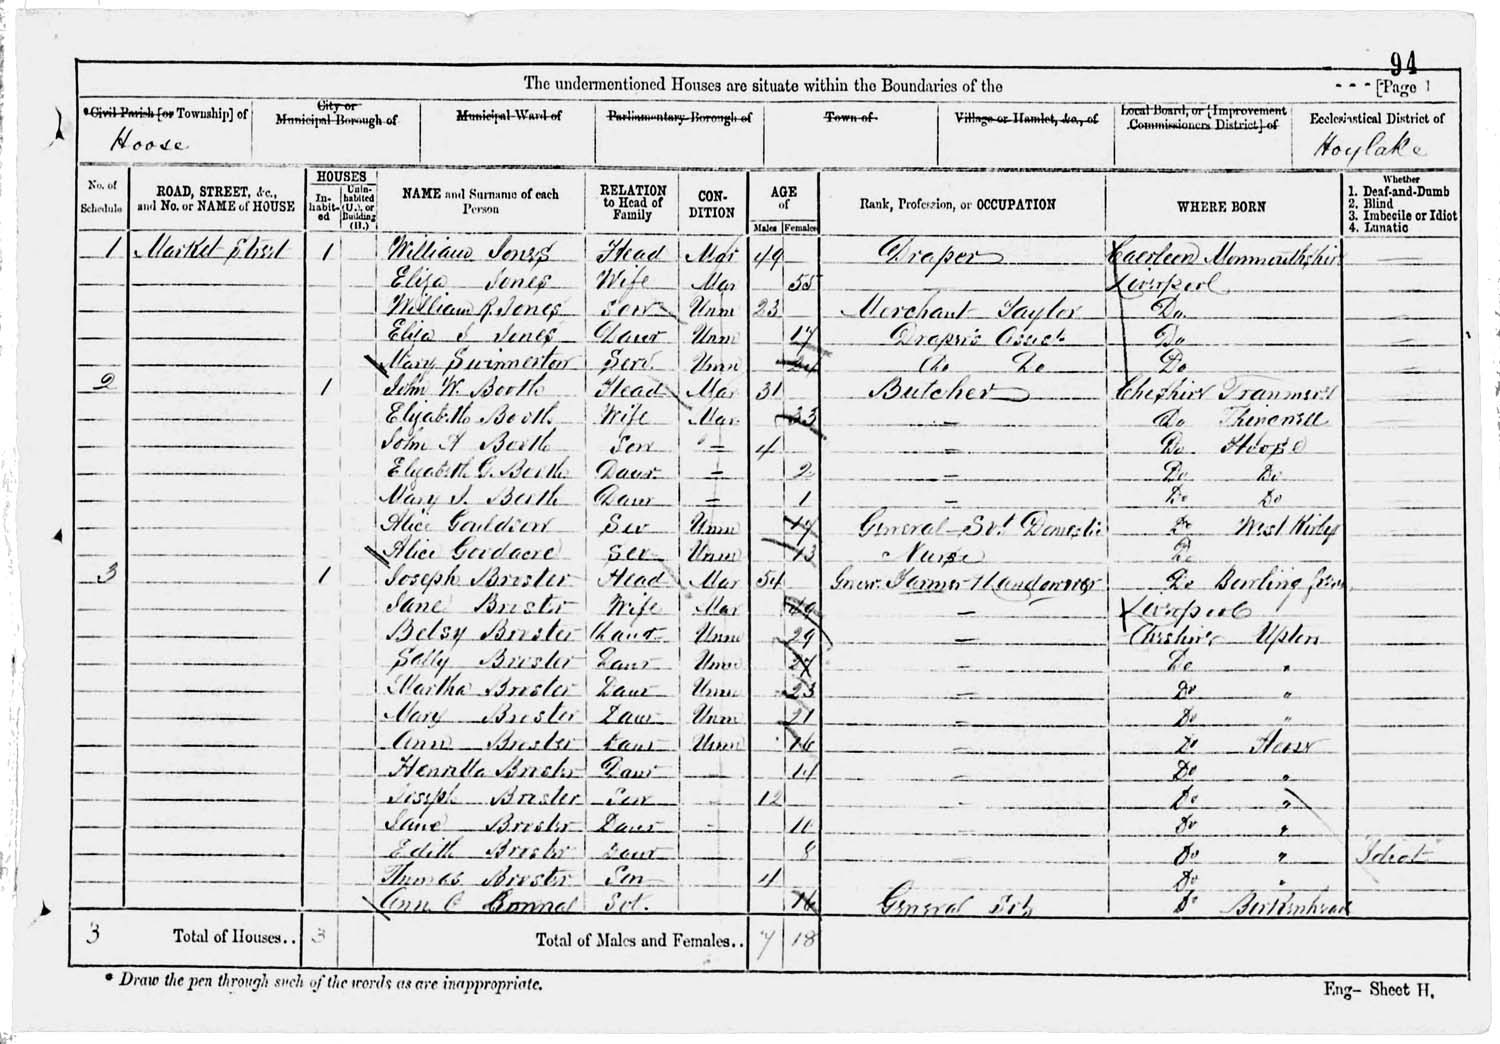 94
The undermentioned Houses are situate within the Boundaries of the
[Page 1
*Civil Parish [or Township] of
City or Municipal Borough of
Municipal Ward of
Parliamentary Borough of
Town of
Village or Hamlet, &c., of
Local Board, or [Improvement Commissioners District] of
Ecclesiastical District of
Hoose
Hoylake
No. of Schedule
ROAD, STREET, &c., and No. or NAME of HOUSE
HOUSES
In-habit-ed
Unin-habited (U.), or Building (B.)
NAME and Surname of each Person
RELATION to Head of Family
CON-DITION
AGE of
Males
Females
Rank, Profession, or OCCUPATION
WHERE BORN
Whether
1. Deaf-and-Dumb
2. Blind
3. Imbecile or Idiot
4. Lunatic
1 Market Street 1 William Jones Head Mar 49 Draper Caerleon Monmouthshire
Eliza Jones Wife Mar 55 Liverpool
William R. Jones Son Unm 23 Merchant Taylor Do
Eliza J Jones Daur Unm 17 Draper's Assist Do
Mary Swinnerton Serv Unm 24 Do Do Do
2 1 John W. Booth Head Mar 31 Butcher Cheshire Tranmere
Elizabeth Booth Wife Mar 33 – Do
John A Booth Son = 4 – Do Hoose
Elizabeth G. Booth Daur = 2 – Do Do
Mary J. Booth Daur = 1 – Do Do
Alice Gouldson Ser Unm 17 General Svt Domestic Do West Kirby
Alice Goodacre Ser Unm 13 Nurse Do
3 1 Joseph Brister Head Mar 54 Farmer & Landowner Do Bowling
Jane Brister Wife Mar 49 – Liverpool
Betsy Brister Daur Unm 29 – Cheshire Upton
Sally Brister Daur Unm 27 – Do "
Martha Brister Daur Unm 23 – Do "
Mary Brister Daur Unm 21 – Do "
Ann Brister Daur Unm 16 – Do Hoose
Henrietta Brister Daur – 14 – Do "
Joseph Brister Son – 12 – Do "
Jane Brister Daur – 10 – Do "
Edith Brister Daur 8 – Do " Idiot
Thomas Brister Son 4 – Do "
Ann C Svt. 16 General Svt Do Birkenhead
3 Total of Houses.. 3 Total of Males and Females.. 7 18
* Draw the pen through such of the words as are inappropriate.
Eng- Sheet H.